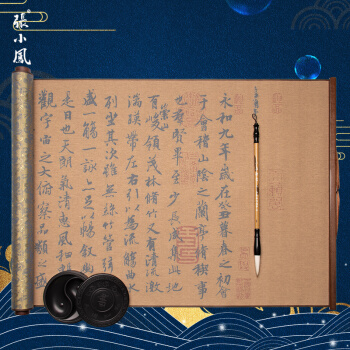 張小鳳
永和九年歲在癸丑暮春之初會
于會稽山陰之蘭亭脩稧事
也羣賢畢至少長咸集此地
有崇山峻領茂林脩竹又有清流激
湍暎帶左右引以為流觴曲水
列坐其次雖無絲竹管
盛一觴一詠亦足以暢敘幽
是日也天朗氣清惠風和
觀宇宙之大俯察品類之盛